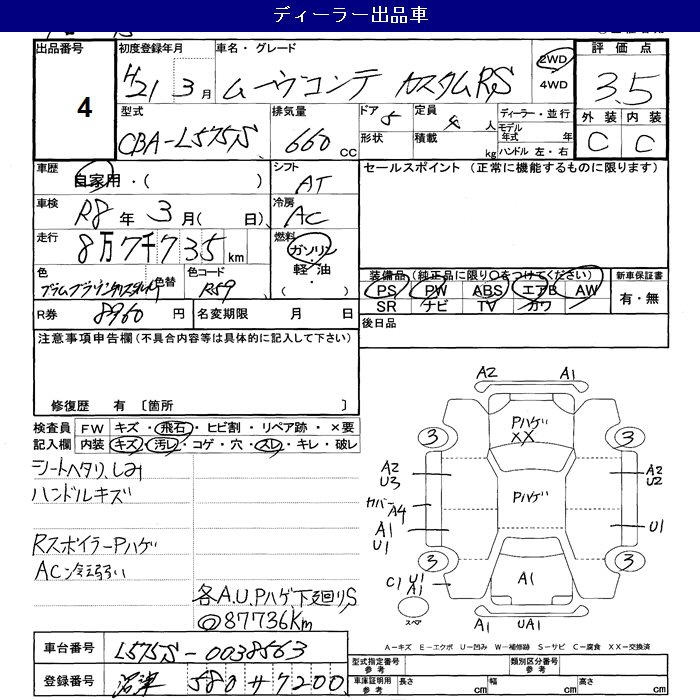 ディーラー出品車
出品番号
4
初度登録年月
H21年 3月
車名・グレード
ムーヴコンテ カスタムRS
2WD
4WD
評価点
3.5
外装 内装
C C
型式
CBA-L575S
排気量
660 cc
ドア 5
形状
定員 4人
積載 kg
ディーラー・並行
モデル年式 年
ハンドル 左・右
車歴
自家用・( )
シフト
AT
セールスポイント (正常に機能するものに限ります)
車検
R8年 3月( 日)
冷房
AC
走行
8万7千735 km
燃料
ガソリン
軽・油
( )
色
プラムブラウンクリスタルM
色替
色コード
R59
装備品 (純正品に限り○をつけてください)
PS PW ABS エアB AW
SR ナビ TV カワ
新車保証書
有・無
R券 8960 円
名変期限 月 日
後日品
注意事項申告欄 (不具合内容等は具体的に記入して下さい)
修復歴 有 〔箇所 〕
検査員 FW キズ・飛石・ヒビ割・リペア跡・×要
記入欄 内装 キズ・汚レ・コゲ・穴・スレ・キレ・破レ
シートヘタリ、しみ
ハンドルキズ
Rスポイラー Pハゲ
AC冷え弱い
各A.U.Pハゲ 下廻りS
◎87736Km
A2 A1
Pハゲ
XX
3 3
A2
U3
A2
U2
Pハゲ
カバー
A4
A1
U1
U1
3 3
C1 U1
A1
A1
スペア
A1 UA1
A-キズ E-エクボ U-凹み W-補修跡 S-サビ C-腐食 XX-交換済
車台番号 L575S-0038563
登録番号 沼津 580 サ 7200
型式指定番号
参考
類別区分番号
参考
車庫証明用
参考
長さ cm 幅 cm 高さ cm